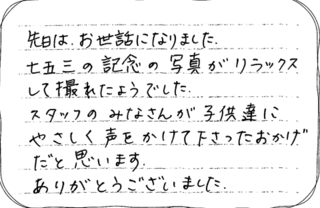 先日は、お世話になりました.
七五三の記念の写真がリラックス
して撮れたようでした.
スタッフのみなさんが子供達に
やさしく声をかけて下さったおかげ
だと思います.
ありがとうございました.